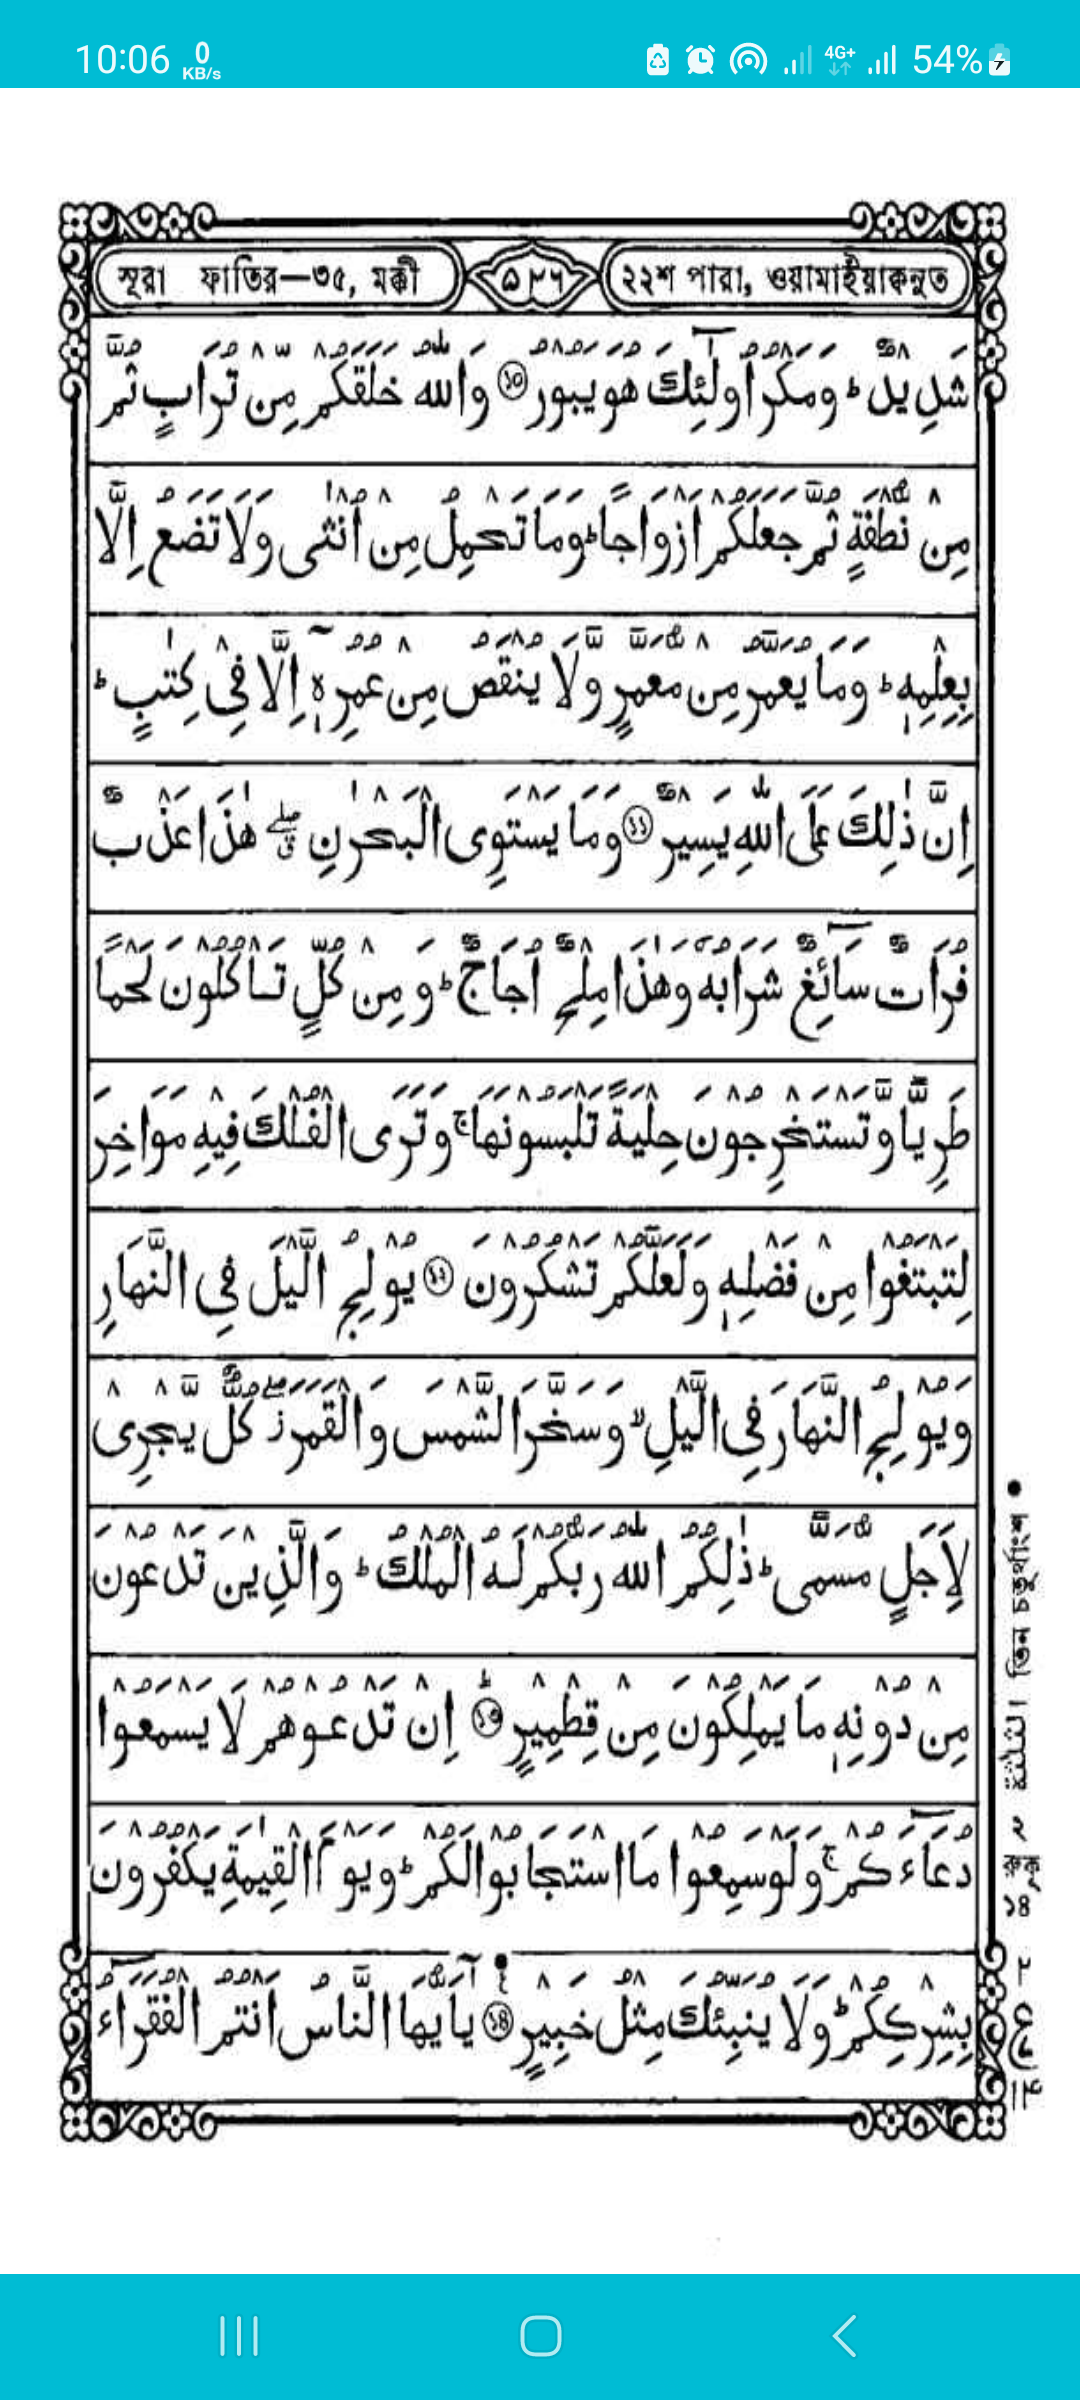 10:06 0 KB/s 4G+ 54%
সূরা ফাতির—৩৫, মক্কী ৫২৬ ২২শ পারা, ওয়ামাইয়াক্বনুত
شَدِيْدٌ ؕ وَمَكْرُ اُولٰٓئِكَ هُوَ يَبُوْرُ ⑩ وَاللّٰهُ خَلَقَكُمْ مِّنْ تُرَابٍ ثُمَّ
مِنْ نُّطْفَةٍ ثُمَّ جَعَلَكُمْ اَزْوَاجًا ؕ وَمَا تَحْمِلُ مِنْ اُنْثٰى وَلَا تَضَعُ اِلَّا
بِعِلْمِهٖ ؕ وَمَا يُعَمَّرُ مِنْ مُّعَمَّرٍ وَّلَا يُنْقَصُ مِنْ عُمُرِهٖٓ اِلَّا فِيْ كِتٰبٍ ؕ
اِنَّ ذٰلِكَ عَلَى اللّٰهِ يَسِيْرٌ ⑪ وَمَا يَسْتَوِى الْبَحْرٰنِ ۖق هٰذَا عَذْبٌ
فُرَاتٌ سَآئِغٌ شَرَابُهٗ وَهٰذَا مِلْحٌ اُجَاجٌ ؕ وَمِنْ كُلٍّ تَاْكُلُوْنَ لَحْمًا
طَرِيًّا وَّتَسْتَخْرِجُوْنَ حِلْيَةً تَلْبَسُوْنَهَا ۚ وَتَرَى الْفُلْكَ فِيْهِ مَوَاخِرَ
لِتَبْتَغُوْا مِنْ فَضْلِهٖ وَلَعَلَّكُمْ تَشْكُرُوْنَ ⑫ يُوْلِجُ الَّيْلَ فِى النَّهَارِ
وَيُوْلِجُ النَّهَارَ فِى الَّيْلِ ۙ وَسَخَّرَ الشَّمْسَ وَالْقَمَرَ ۖز كُلٌّ يَّجْرِىْ
لِاَجَلٍ مُّسَمًّى ؕ ذٰلِكُمُ اللّٰهُ رَبُّكُمْ لَهُ الْمُلْكُ ؕ وَالَّذِيْنَ تَدْعُوْنَ
مِنْ دُوْنِهٖ مَا يَمْلِكُوْنَ مِنْ قِطْمِيْرٍ ؕ ⑬ اِنْ تَدْعُوْهُمْ لَا يَسْمَعُوْا
دُعَآءَكُمْ ۚ وَلَوْ سَمِعُوْا مَا اسْتَجَابُوْا لَكُمْ ؕ وَيَوْمَ الْقِيٰمَةِ يَكْفُرُوْنَ
بِشِرْكِكُمْ ؕ وَلَا يُنَبِّئُكَ مِثْلُ خَبِيْرٍ ⑭ يٰٓاَيُّهَا النَّاسُ اَنْتُمُ الْفُقَرَآءُ
রুকু ২ الثلثة । তিন চতুর্থাংশ ●
১৪
٢
ع
١٤